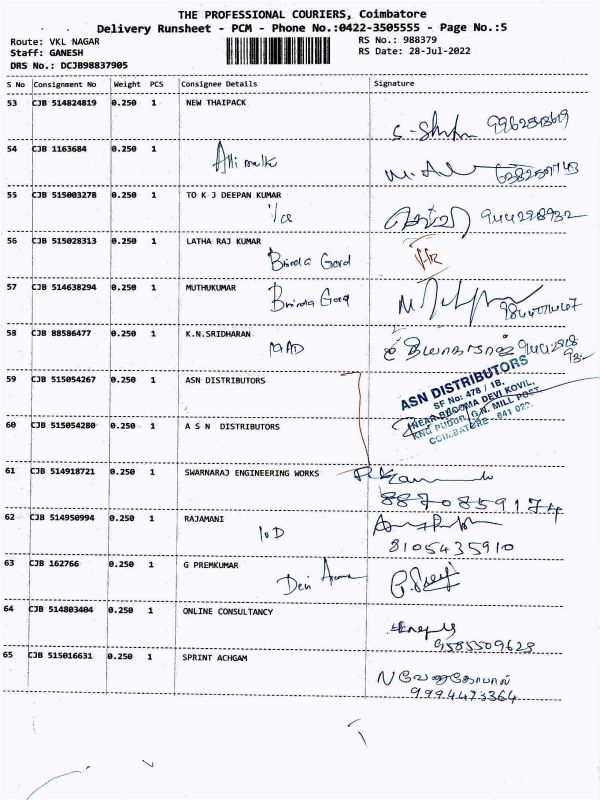 THE PROFESSIONAL COURIERS, Coimbatore
Delivery Runsheet - PCM - Phone No.:0422-3505555 - Page No.:5
Route: VKL NAGAR RS No.: 988379
Staff: GANESH RS Date: 28-Jul-2022
DRS No.: DCJB98837905
S No Consignment No Weight PCS Consignee Details Signature
53 CJB 514824819 0.250 1 NEW THAIPACK
54 CJB 1163684 0.250 1
55 CJB 515003278 0.250 1 TO K J DEEPAN KUMAR
944228932
56 CJB 515028313 0.250 1 LATHA RAJ KUMAR
Brinda Gard
57 CJB 514638294 0.250 1 MUTHUKUMAR
Brinda Gard
58 CJB 88586477 0.250 1 K.N.SRIDHARAN
59 CJB 515054267 0.250 1 ASN DISTRIBUTORS
ASN DISTRIBUTORS
SF No: 478 / 1B,
NEAR BHOOMA DEVI KOVIL,
KNG PUDUR, G.N. MILL POST
COIMBATORE - 641 029
60 CJB 515054280 0.250 1 A S N DISTRIBUTORS
61 CJB 514918721 0.250 1 SWARNARAJ ENGINEERING WORKS
8870859174
62 CJB 514950994 0.250 1 RAJAMANI
8105435910
63 CJB 162766 0.250 1 G PREMKUMAR
Devi
64 CJB 514803404 0.250 1 ONLINE CONSULTANCY
9585509628
65 CJB 515016631 0.250 1 SPRINT ACHGAM
N வேணுகோபால்
9994473364